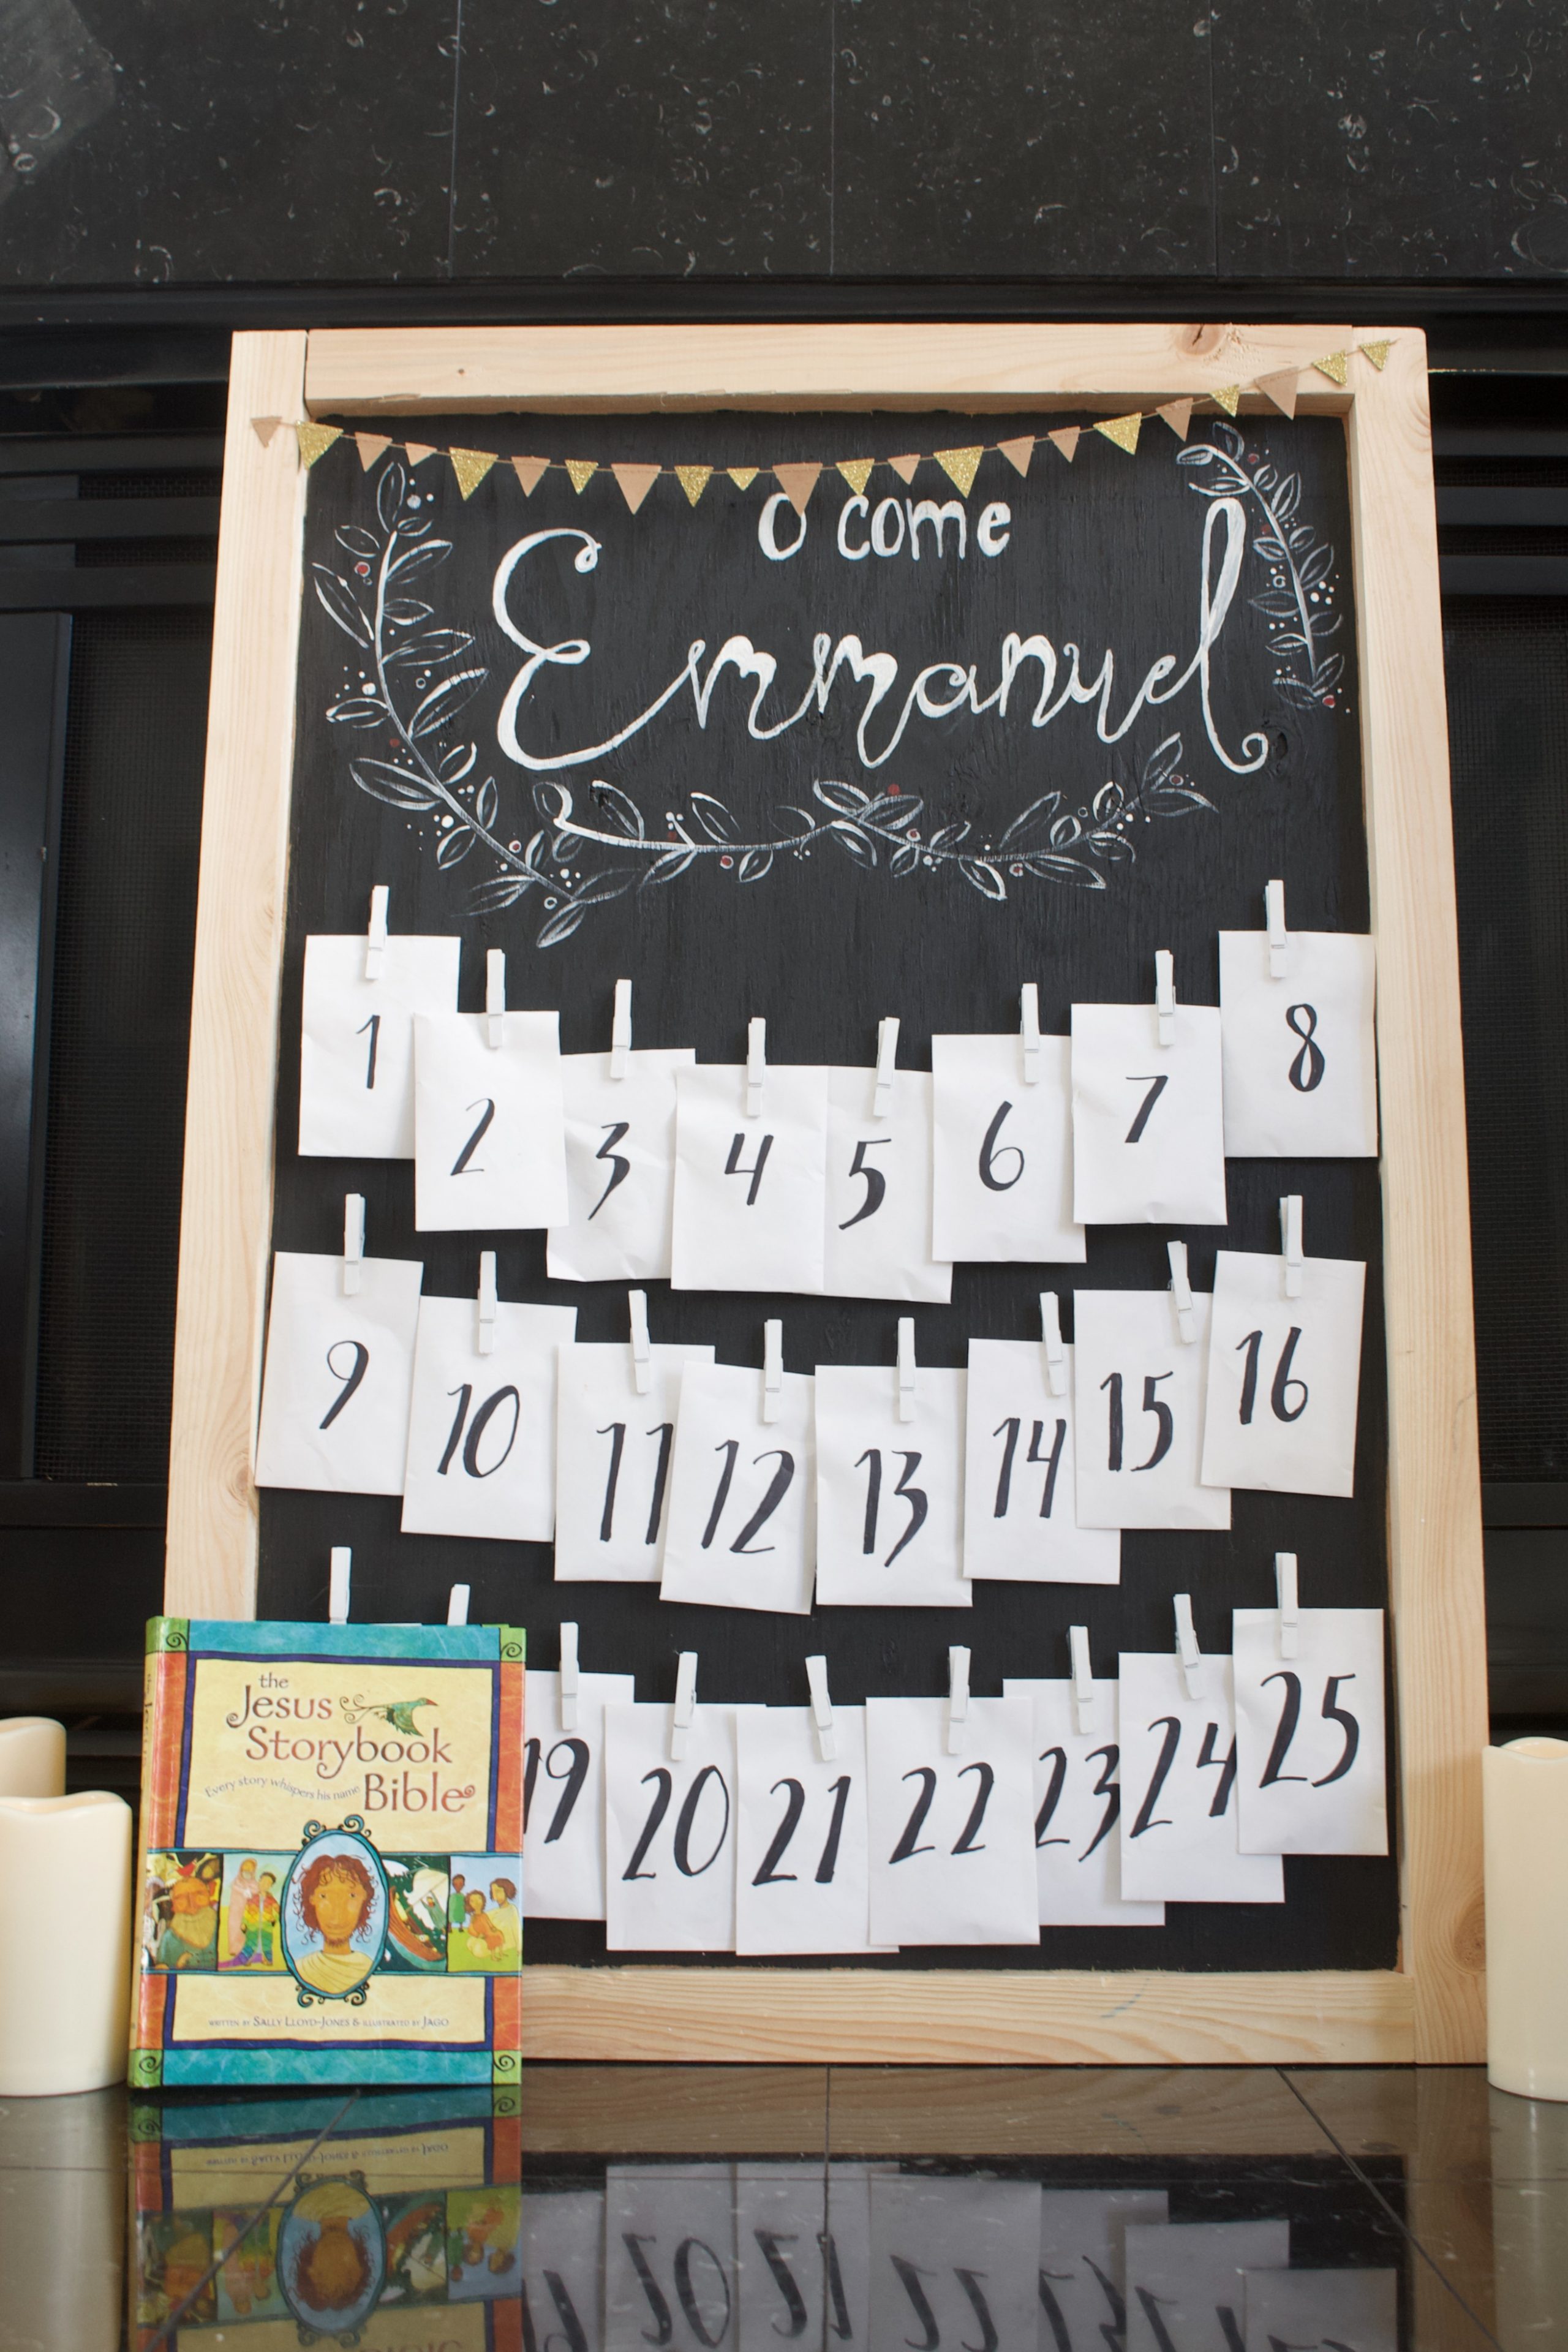 O come
Emmanuel
1 2 3 4 5 6 7 8
9 10 11 12 13 14 15 16
19 20 21 22 23 24 25
the
Jesus
Storybook
Every story whispers his name
Bible
WRITTEN BY SALLY LLOYD-JONES & ILLUSTRATED BY JAGO